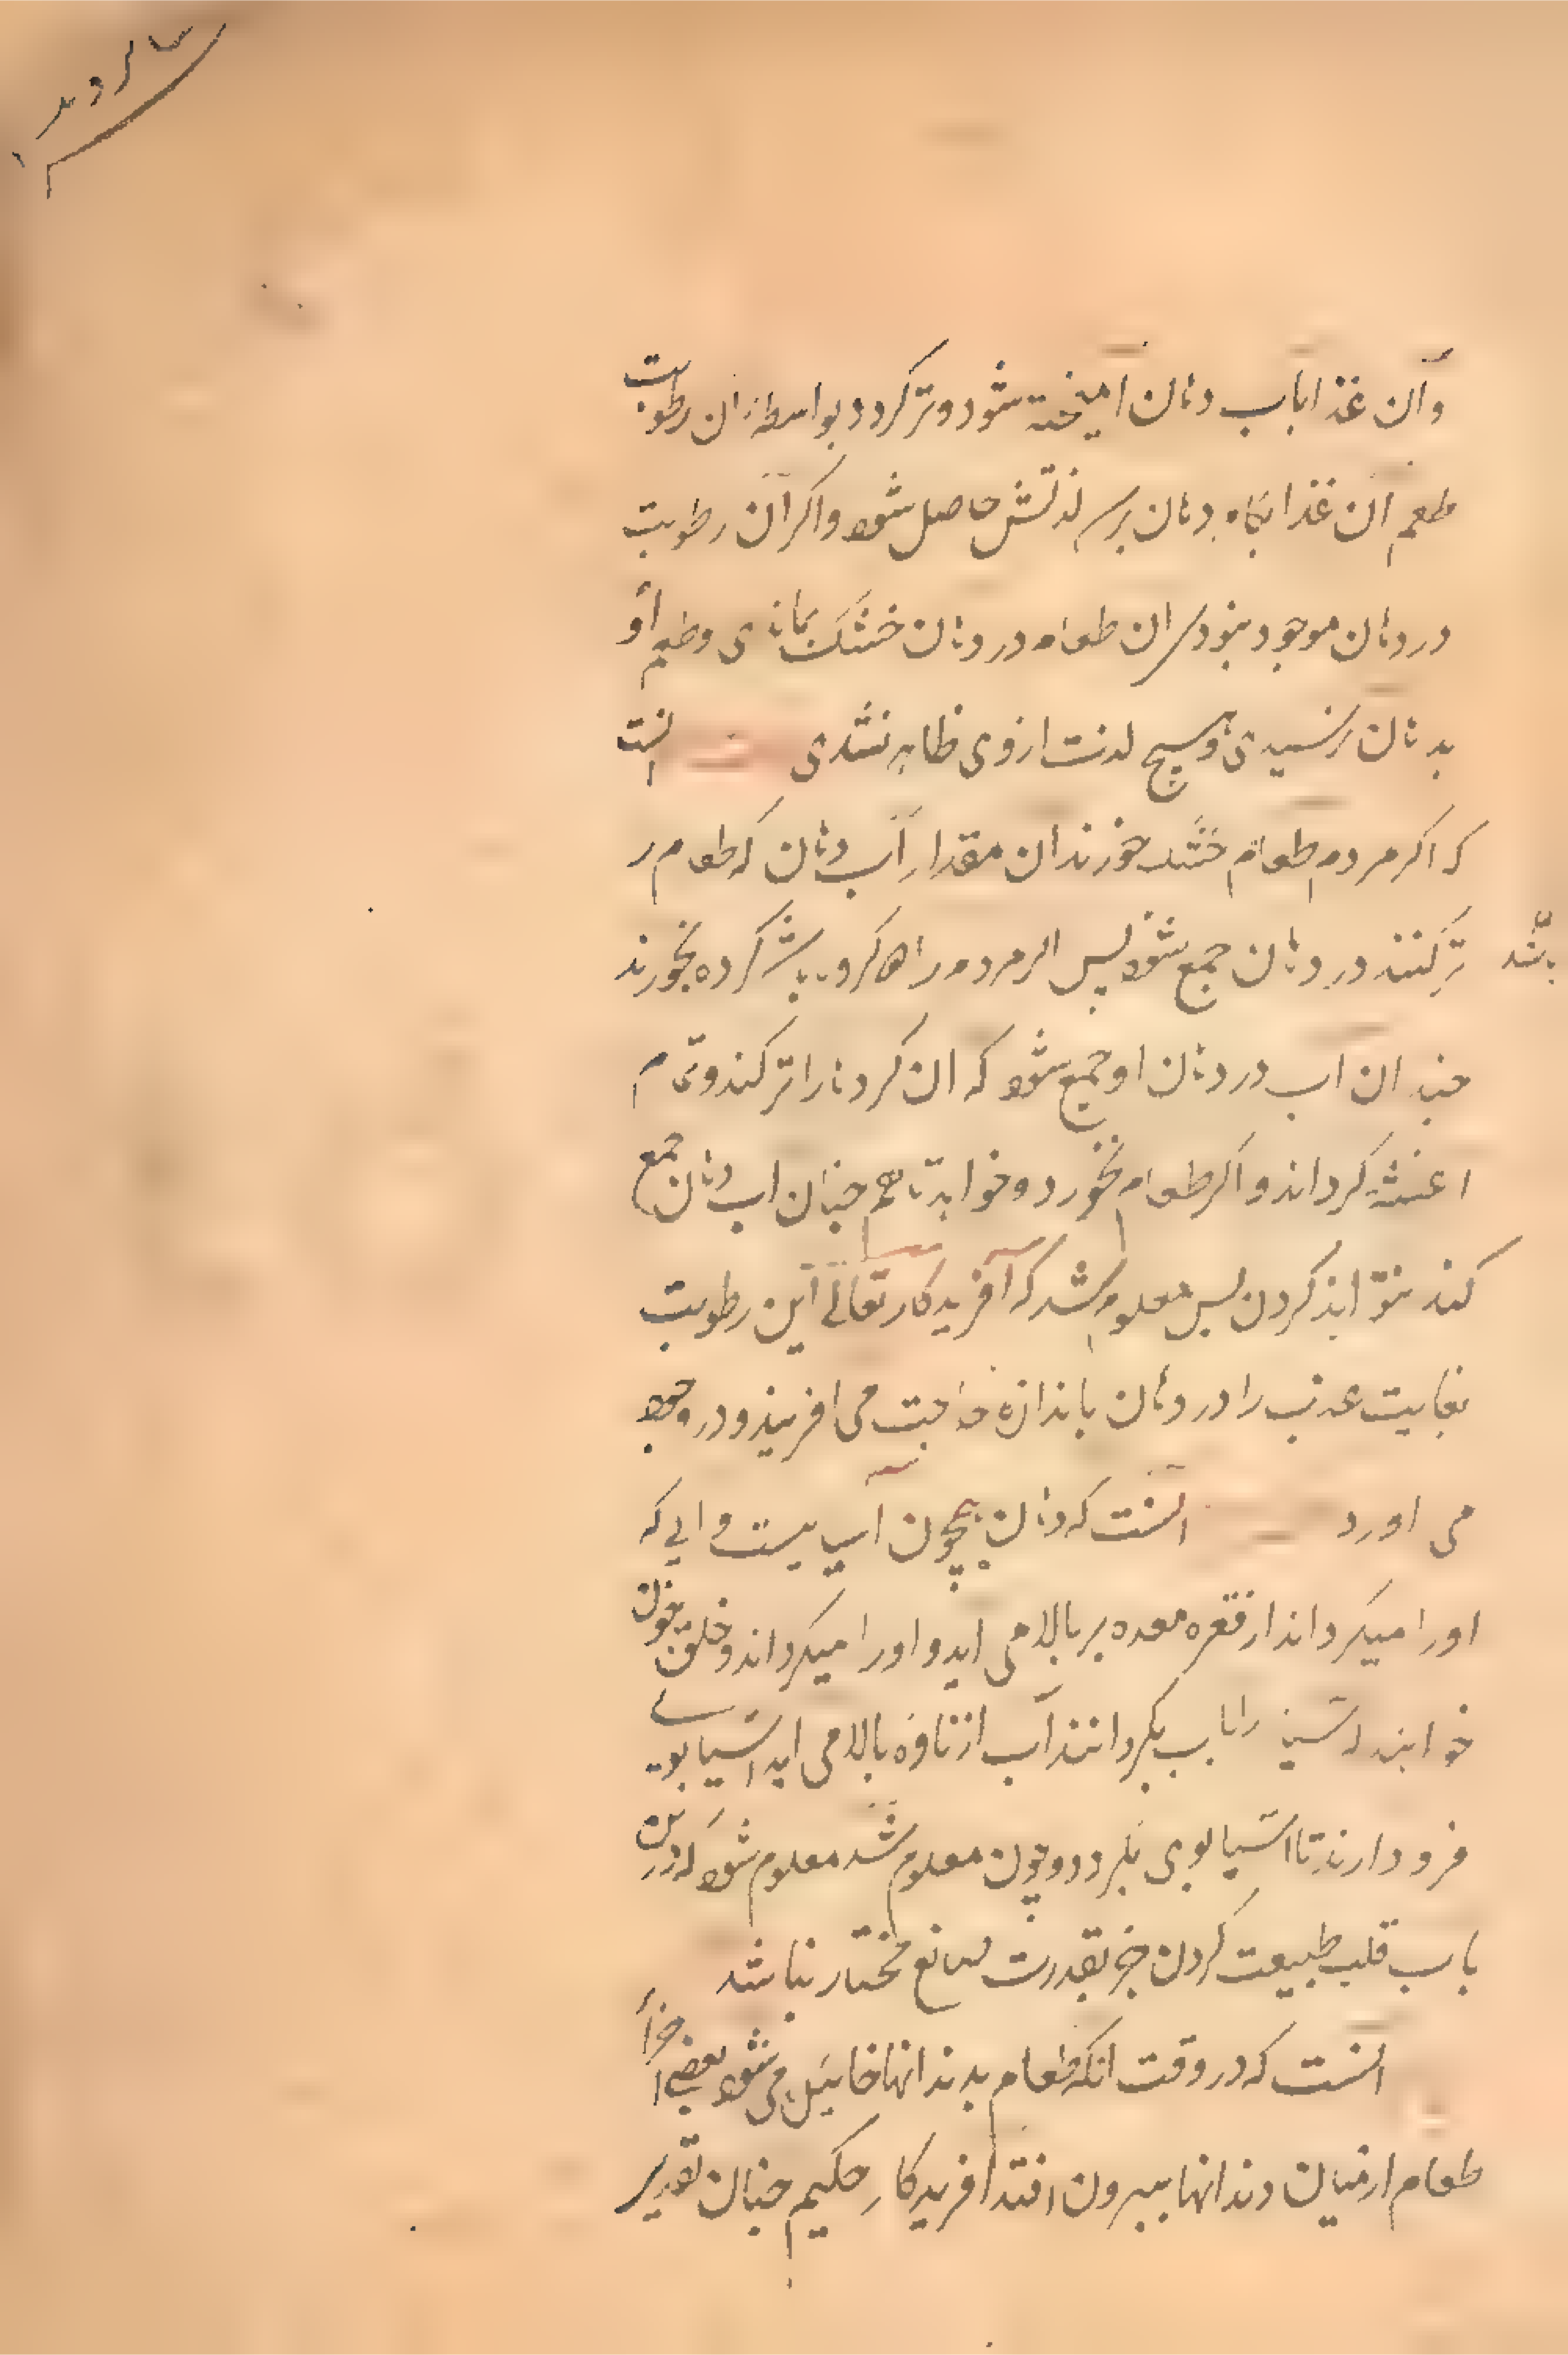 وآن غذا باب دهان امیخته شود و تر کردد بواسطهٔ ان رطوبت
طعم آن غذا بکام دهان برسد لذتش حاصل شود واکر آن رطوبت
در دهان موجود نبودی ان طعام در دهان خشک بماندی وطعم او
بدهان نرسیدی وهیچ لذت ازوی ظاهر نشدی انست
که اکر مردم طعام خشک خورند ان مقدار آب دهان که طعام را
تر کنند در دهان جمع شود پس اکر مردم را کرده بخورند
باشد
چندان اب در دهان او جمع شود که ان کردها را تر کند وتمام
اغشته کرداند واکر طعام نخورد وخواهد تا همچنان اب دهان جمع
کند نتواند کردن پس معلوم شد که آفریدکار تعالی این رطوبت
بغایت عذب را در دهان باندازه حاجت می افریند و در وجود
می اورد انست که دهان همچون آسیاییست وابی که
اورا میکرداند از قعر معده بر بالا می اید واورا میکرداند وخلق چون
خواهند اسیا را باب بکردانند آب از ناوه بالا می اید اسیا بوی
فرود ارند تا اسیا بوی بکردد وچون معلوم شد معلوم شود که درین
باب قلب طبیعت کردن جز بقدرت صانع مختار نباشد
انست که در وقت انکه طعام بدندانها خاییده می شود بعضی اجزا
طعام از میان دندانها بیرون افتد افریدکار حکیم چنان تقدیر